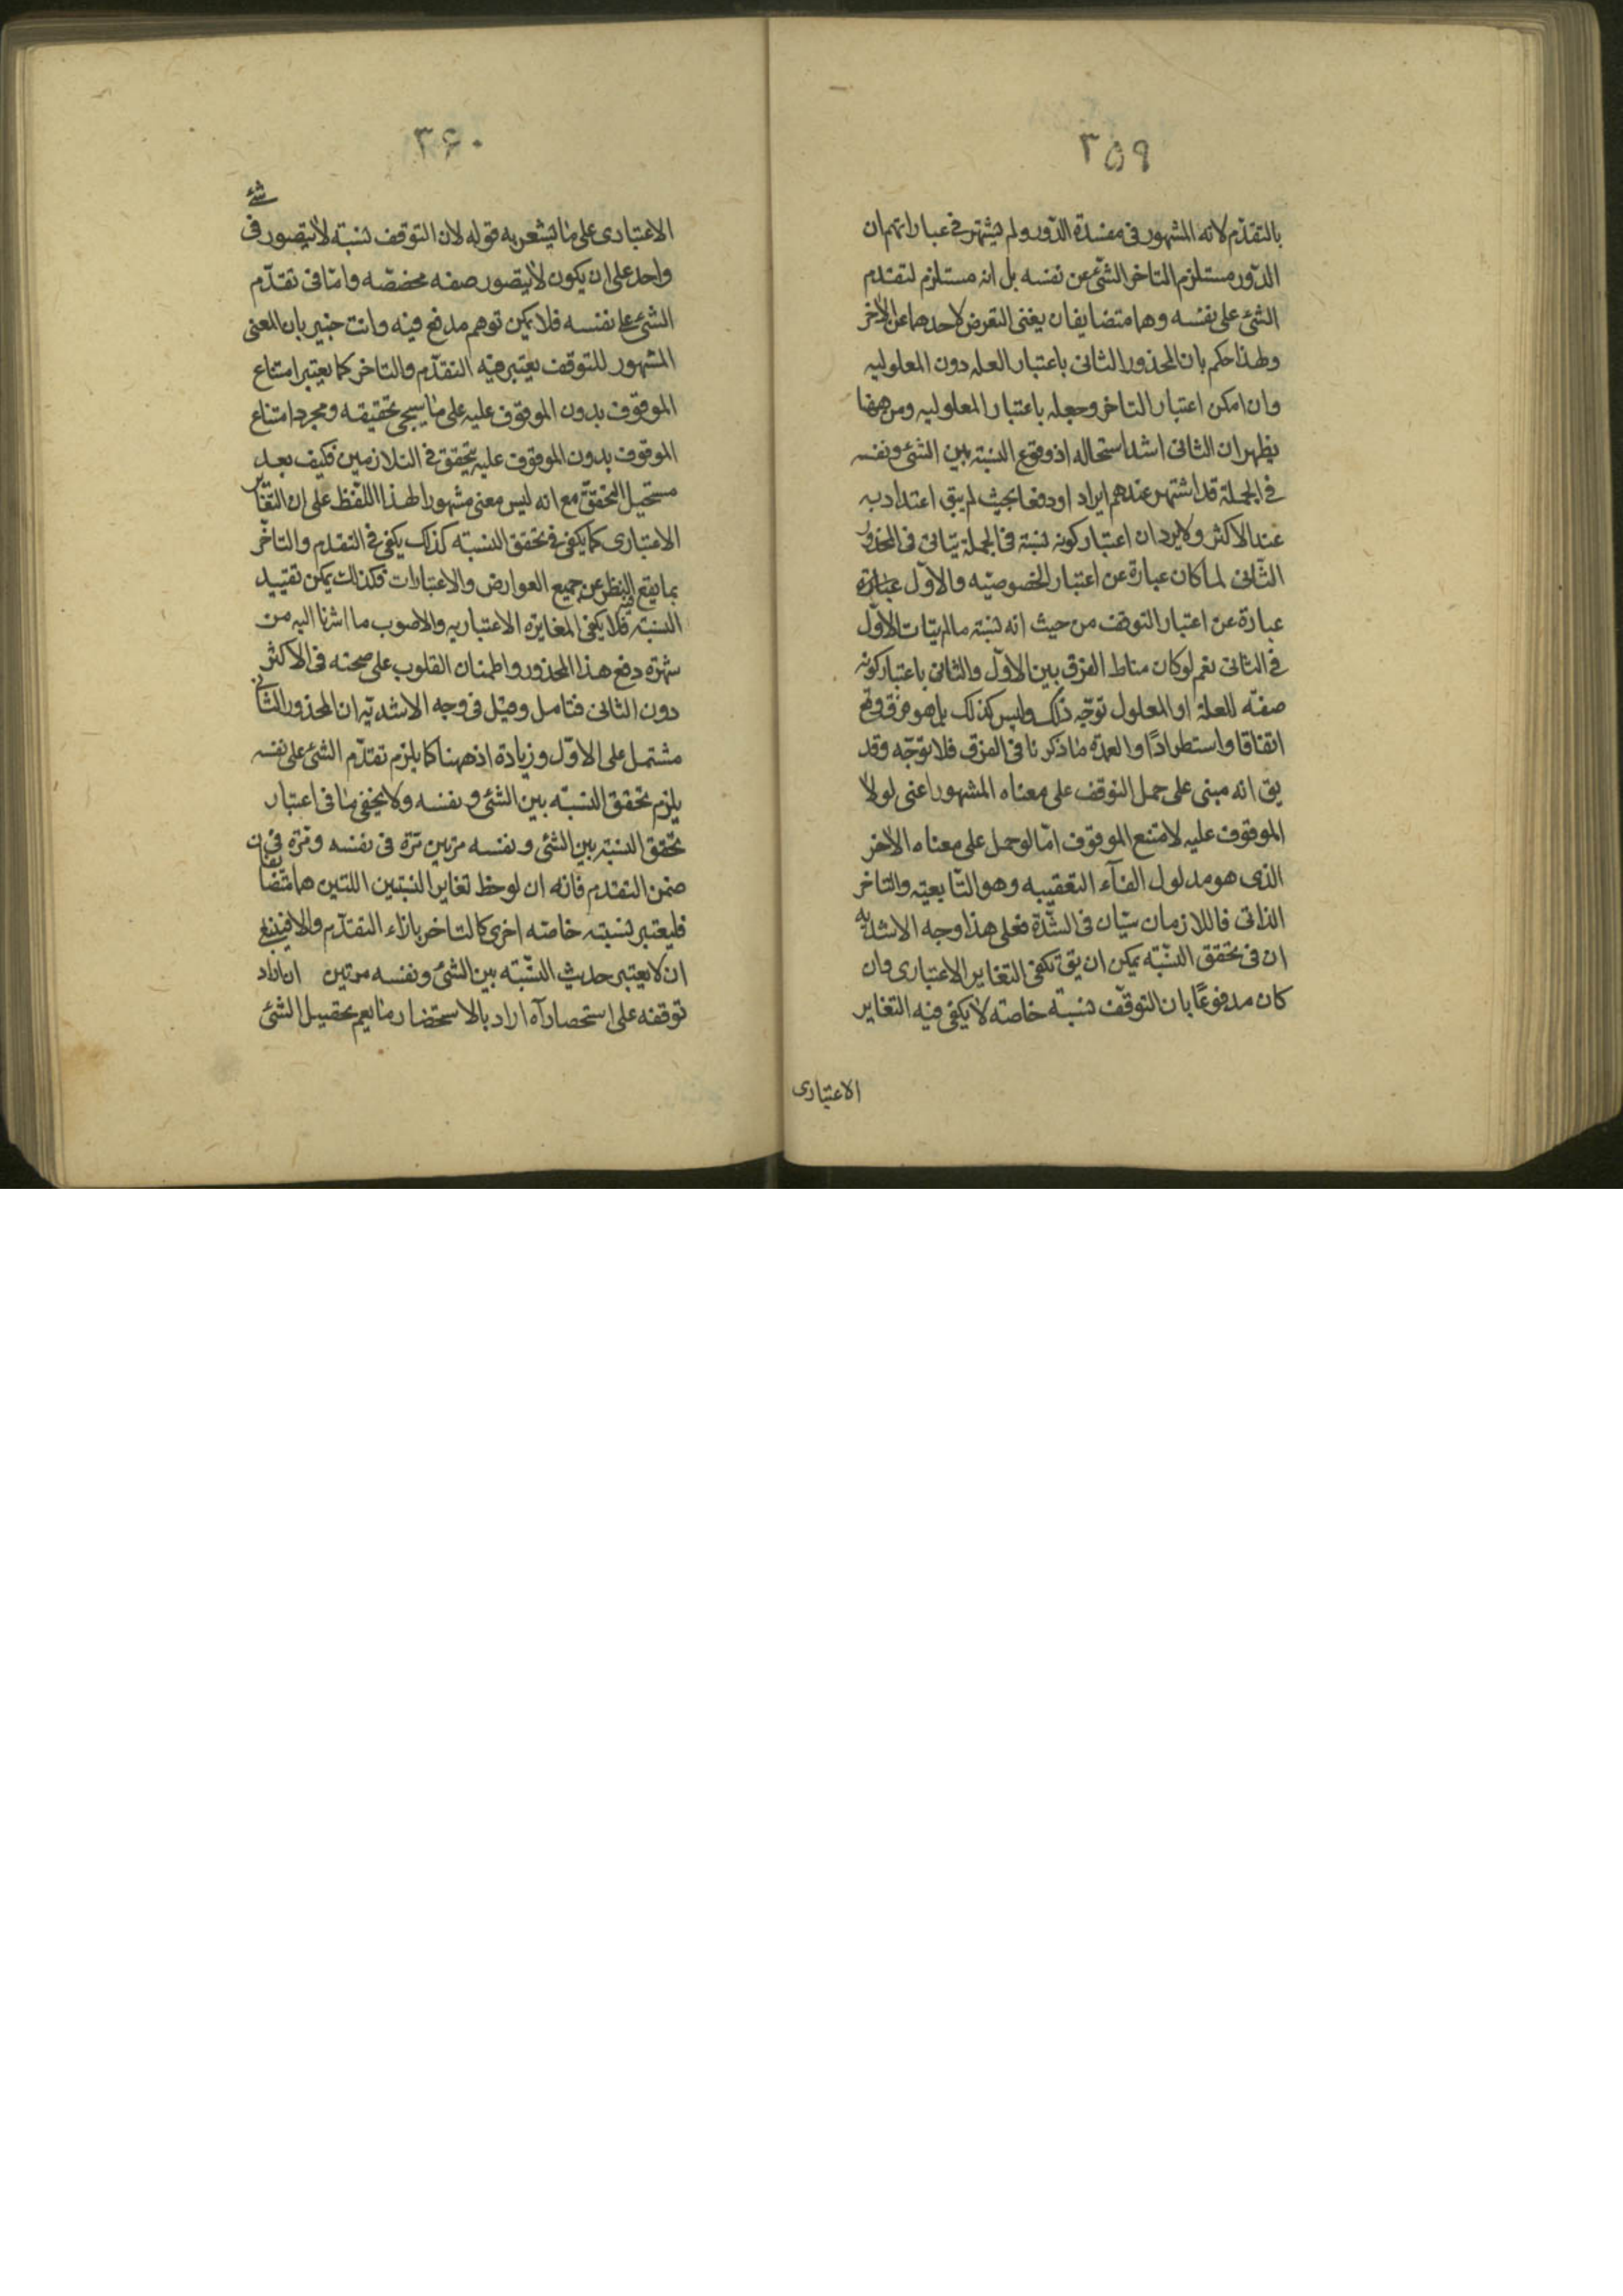 ۳۵۹
بالتقدّم لانه المشهور فى مفسدة الدّور ولم يشتهر فى عباراتهم ان
الدّور مستلزم التاخر الشئ عن نفسه بل انه مستلزم لتقدم
الشئ على نفسه وهما متضايفان يغنى التعرض لاحدهما عن الاخر
ولهذا حكم بان المحذور الثانى باعتبار العله دون المعلوليه
وان امكن اعتبار التاخر وجعله باعتبار المعلوليه ومن ههنا
يظهر ان الثانى اشد استحاله اذ وقوع النسبة بين الشئ ونفسه
فى الجملة قد اشتهر عندهم ايراد او دفعا بحيث لم يبق اعتداد به
عند الاكثر ولا يرد ان اعتبار كونه نسبة فى الجملة يتاتى فى المحذور
الثّانى لما كان عبارة عن اعتبار الخصوصيّه والاوّل عبارة
عبارة عن اعتبار التوقف من حيث انه نسبة ما لم يتات الاوّل
فى الثانى نعم لو كان مناط الفرق بين الاوّل والثانى باعتبار كونه
صفته للعلة او المعلول توجّه ذلك وليس كذلك بل هو فرق وقع
اتفاقا واستطرادًا والعمدة ما ذكرنا فى الفرق فلا توجّه وقد
يق انه مبنى على حمل التوقف على معناه المشهور اعنى لولا
الموقوف عليه لامتنع الموقوف امّا لو حمل على معناه الاخر
الذى هو مدلول الفآء التعقيبيه وهو التّابعيته والتاخر
الذاتى فاللازمان سيّان فى الشّدة فعلى هذا وجه الاشديه
ان فى تحقق النسّبة يمكن ان يق يكفى التغاير الاعتبارى وان
كان مدفوعًا بان التوقّف نسبة خاصه لا يكفى فيه التغاير
الاعتبارى
۳۶۰
شئ
الاعتبارى على ما يشعر به قوله لان التوقف نسبة لا يتصور فى
واحد على ان يكون لا يتصور صفه مخصّصه وامّا فى تقدّم
الشئ على نفسه فلا يمكن توهم مدفع فيه وانت خبير بان المعنى
المشهور للتوقف يعتبر فيه التقدّم والتاخر كما يعتبر امتناع
الموقوف بدون الموقوف عليه على ما سيجئ تحقيقه ومجرد امتناع
الموقوف بدون الموقوف عليه يتحقق فى التلازمين فكيف يعد
مستحيل التحقق مع انه ليس معنى مشهورا لهذا اللفظ على ان التغاير
الاعتبارى كما يكفى فى تحقق النسبته كذلك يكفى فى التقدم والتاخّر
بما يقع النظر عن جميع العوارض والاعتبارات فكذلك يمكن تقييد
النسبته فلا يكفى المغايرة الاعتباريه والاصوب ما اشرنا اليه من
شهرة دفع هذا المحذور واطمنان القلوب على صحته فى الاكثر
دون الثانى فتامل وقيل فى وجه الاشديّة ان المحذور الثانى
مشتمل على الاوّل وزيادة اذ ههنا كما يلزم تقدّم الشئ على نفسه
يلزم تحقق النسبّه بين الشئ ونفسه ولا يخفى ما فى اعتبار
تحقق النسبة بين الشئ ونفسه مرّتين مرّة فى نفسه ومّرة فى
ضمن التقدم فانه ان لوحظ تغاير النسبتين اللتين هما متضايفان
فليعتبر نسبته خاصّه اخرى كالتاخر بازاء التقدّم والا فينبغ
ان لا يعتبر حديث النسّبته بين الشئ ونفسه مرتين ان اراد
توقفه على استحصار آه اراد بالاستحضار ما يعم تحصيل الشئ